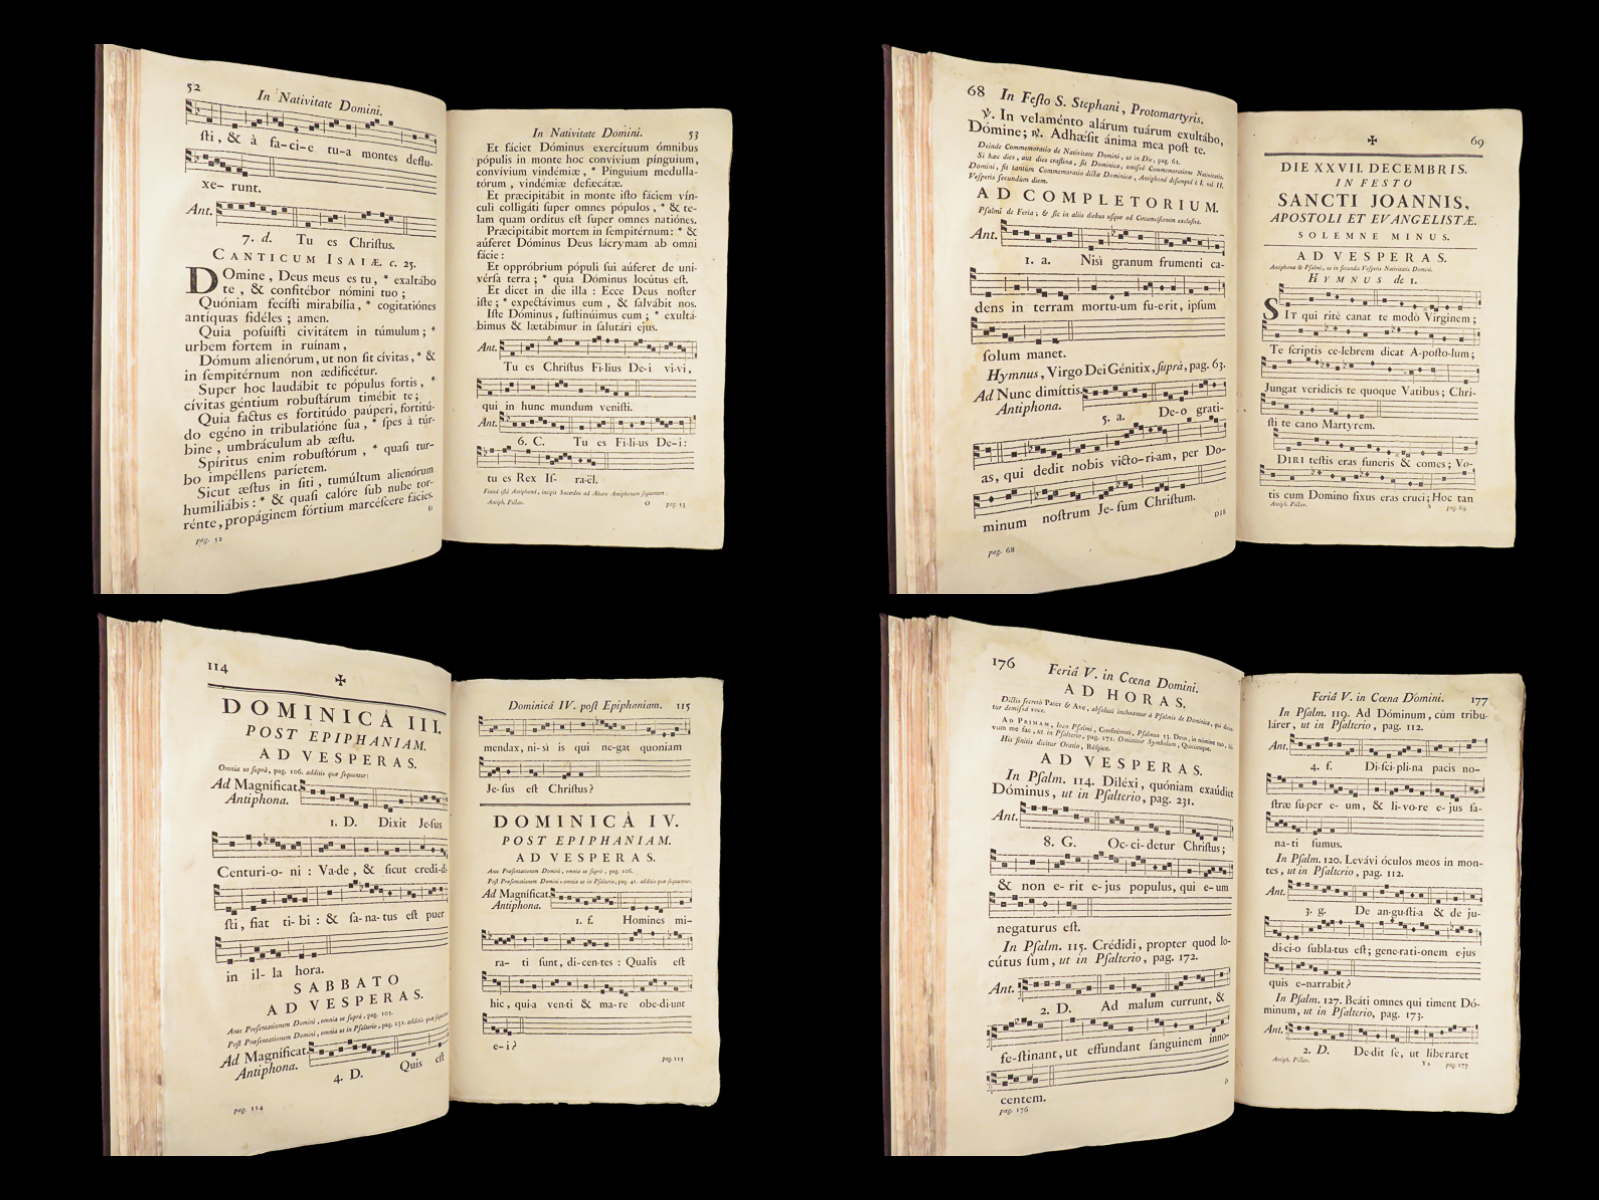 52
In Nativitate Domini.
ſti, & à fa-ci-e tu-a montes deflu-
xe- runt.
Ant.
7. d. Tu es Chriſtus.
CANTICUM ISAIÆ. c. 25.
DOmine, Deus meus es tu, * exaltábo
te, & confitébor nómini tuo;
Quóniam feciſti mirabília, * cogitatiónes
antíquas fidéles; amen.
Quia poſuiſti civitátem in túmulum; *
urbem fortem in ruínam,
Dómum alienórum, ut non ſit cívitas, * &
in ſempitérnum non ædificétur.
Super hoc laudábit te pópulus fortis, *
cívitas géntium robuſtárum timébit te;
Quia factus es fortitúdo paúperi, fortitú-
do egéno in tribulatióne ſua, * ſpes à túr-
bine, umbráculum ab æſtu.
Spíritus enim robuſtórum, * quaſi tur-
bo impéllens paríetem.
Sicut æſtus in ſiti, tumúltum alienórum
humiliábis: * & quaſi calóre ſub nube tor-
rénte, propáginem fórtium marceſcere fácies.
pag. 52
In Nativitate Domini. 53
Et fáciet Dóminus exercítuum ómnibus
pópulis in monte hoc convívium pínguium,
convívium vindémiæ, * Pínguium medulla-
tórum, vindémiæ defæcátæ.
Et præcipitábit in monte iſto fáciem vín-
culi colligáti ſuper omnes pópulos, * & te-
lam quam ordítus eſt ſuper omnes natiónes.
Præcipitábit mortem in ſempitérnum: * &
aúferet Dóminus Deus lácrymam ab omni
fácie:
Et oppróbrium pópuli ſui aúferet de uni-
vérſa terra; * quia Dóminus locútus eſt.
Et dicet in die illa: Ecce Deus noſter
iſte; * expectávimus eum, & ſalvábit nos.
Iſte Dóminus, ſuſtinúimus eum; * exultá-
bimus & lætábimur in ſalutári ejus.
Ant.
Tu es Chriſtus Fi-lius De-i vi-vi,
qui in hunc mundum veniſti.
Ant.
6. C. Tu es Fi-li-us De-i:
tu es Rex Iſ- ra-ël.
Finitâ iſtâ Antiphonâ, incipit Sacerdos ad Altare Antiphonam ſequentem:
Antiph. Pſſar. O pag. 53
68 In Feſto S. Stephani, Protomartyris.
℣. In velaménto alárum tuárum exultábo,
Dómine; ℟. Adhæſit ánima mea poſt te.
Deinde Commemoratio de Nativitate Domini, ut in Die, pag. 61.
Si hac dies, aut dies craſtina, ſit Dominica, omiſsâ Commemoratione Nativitatis
Domini, fit tantùm Commemoratio dictæ Dominicæ, Antiphonâ deſumptâ è I. vel II.
Veſperis ſecundùm diem.
AD COMPLETORIUM.
Pſalmi de Feria; & ſic in aliis diebus uſque ad Circumciſionem excluſivè.
Ant.
1. a. Niſi granum frumenti ca-
dens in terram mortu-um fu-erit, ipſum
ſolum manet.
Hymnus, Virgo Dei Génitix, ſuprà, pag. 63.
Ad Nunc dimíttis.
Antiphona.
5. a. De-o grati-
as, qui dedit nobis victo-ri-am, per Do-
minum noſtrum Je-ſum Chriſtum.
DIE
pag. 68
69
DIE XXVII. DECEMBRIS.
IN FESTO
SANCTI JOANNIS,
APOSTOLI ET EVANGELISTÆ.
SOLEMNE MINUS.
AD VESPERAS.
Antiphonæ & Pſalmi, ut in ſecundis Veſperis Nativitatis Domini.
HYMNUS de 1.
SIT qui ritè canat te modò Virginem;
Te ſcriptis ce-lebrem dicat A-poſto-lum;
Jungat veridicis te quoque Vatibus; Chri-
ſti te cano Martyrem.
DIRI teſtis eras funeris & comes; Vo-
tis cum Domino fixus eras cruci; Hoc tan
pag. 69
114
DOMINICA III.
POST EPIPHANIAM.
AD VESPERAS.
Omnia ut ſuprà, pag. 106. additis quæ ſequuntur:
Ad Magnificat.
Antiphona.
1. D. Dixit Je-ſus
Centuri-o- ni: Va-de, & ſicut credi-di-
ſti, fiat ti-bi: & ſa-na-tus eſt puer
in il-la hora.
SABBATO
AD VESPERAS.
Ante Præſentationem Domini, omnia ut ſuprà, pag. 105.
Poſt Præſentationem Domini, omnia ut in Pſalterio, pag. 231. additis quæ ſequuntur
Ad Magnificat.
Antiphona.
4. D. Quis eſt
pag. 114
Dominicâ IV. poſt Epiphaniam. 115
mendax, ni-ſi is qui ne-gat quoniam
Je-ſus eſt Chriſtus?
DOMINICA IV.
POST EPIPHANIAM.
AD VESPERAS.
Ante Præſentationem Domini, omnia ut ſuprà, pag. 106.
Poſt Præſentationem Domini, omnia ut in Pſalterio, pag. 41. additis quæ ſequuntur.
Ad Magnificat.
Antiphona.
1. f. Homines mi-
ra- ti ſunt, di-cen-tes: Qualis eſt
hic, qui-a ven-ti & ma-re obe-di-unt
e-i?
pag. 115
176 Feriâ V. in Cœna Domini.
AD HORAS.
AD VESPERAS.
In Pſalm. 114. Diléxi, quóniam exaúdiet
Dóminus, ut in Pſalterio, pag. 231.
Ant.
8. G. Oc-ci-detur Chriſtus;
& non e-rit e-jus populus, qui e-um
negaturus eſt.
In Pſalm. 115. Crédidi, propter quod lo-
cútus ſum, ut in Pſalterio, pag. 172.
Ant.
2. D. Ad malum currunt, &
fe-ſtinant, ut effundant ſanguinem inno-
centem.
pag. 176
Feriâ V. in Cœna Domini. 177
In Pſalm. 119. Ad Dóminum, cùm tribu-
lárer, ut in Pſalterio, pag. 112.
Ant.
4. f. Di-ſci-pli-na pacis no-
ſtræ ſu-per e- um, & li-vo-re e-jus ſa-
na-ti ſumus.
In Pſalm. 120. Levávi óculos meos in mon-
tes, ut in Pſalterio, pag. 112.
Ant.
3. g. De an-gu-ſti-a & de ju-
di-ci-o ſubla-tus eſt; gene-rati-onem e-jus
quis e-narrabit?
In Pſalm. 127. Beáti omnes qui timent Dó-
minum, ut in Pſalterio, pag. 173.
Ant.
2. D. De-dit ſe, ut liberaret
pag. 177